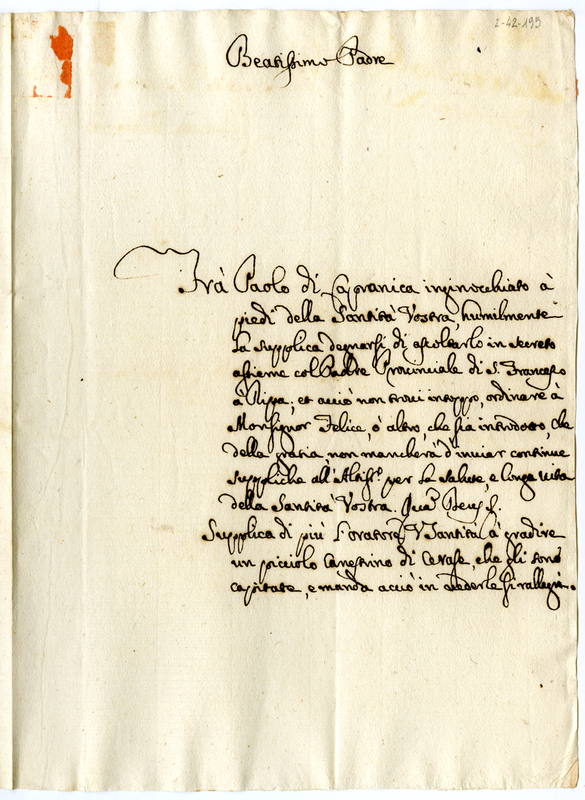 2-42-195
Beatissimo Padre
Frà Paolo di Capranica inginocchiato à
piedi della Santità Vostra, humilmente
La supplica degnarsi di ascoltarlo in secreto
assieme col Padre Provinciale di S. Francesco
à Ripa: et acciò non trovi intoppo, ordinare à
Monsignor Felice, ò altro, che sia introdotto, che
della gratia, non mancherà d'inviar continue
suppliche all'Altiss.º per la salute, e longa vita
della Santità Vostra.
Supplica di più l'oratore V. Santità à gradire
un picciolo Canestrino di Cerase, che gli sono
capitate, e manda acciò in vederle si rallegri.